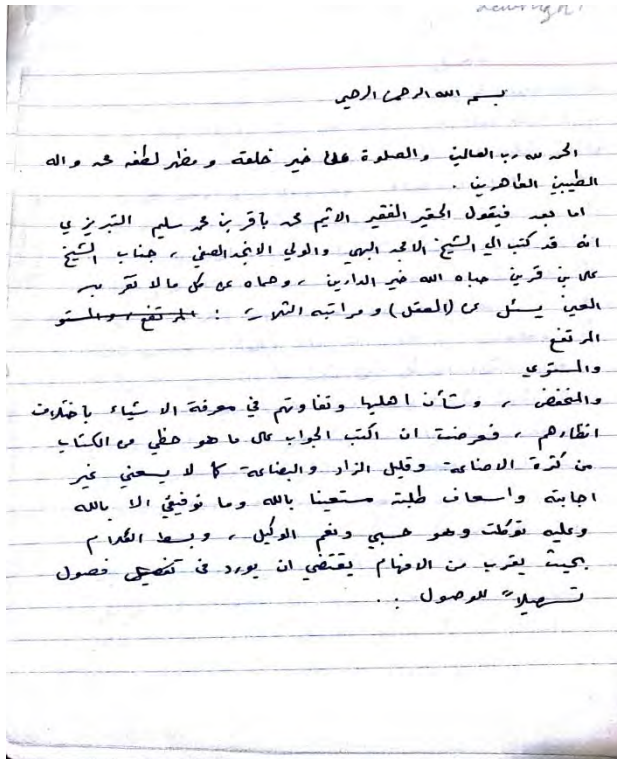 بسم الله الرحمن الرحيم
الحمد لله رب العالمين والصلوة على خير خلقه ومظهر لطفه محمد واله
الطيبين الطاهرين .
اما بعد فيقول الحقير الفقير الاثيم محمد باقر بن محمد سليم التبريزي
انه قد كتب الي الشيخ الامجد البهي والولي الانجد الصفي ، جناب الشيخ
علي بن قرين حباه الله خير الدارين ، وحماه عن كل مالا تقر به
العين يسئل عن (العقل) ومراتبه الثلاث : المرتفع ، والمستو
المرتفع
والمستوي
والمنخفض ، وشأن اهليها وتفاوتهم في معرفة الاشياء باختلاف
انظارهم ، فعرضت ان اكتب الجواب على ما هو حظي من الكتاب
من كثرة الاضاعة وقليل الزاد والبضاعة كما لا يسعني غير
اجابته واسعاف طلبته مستعينا بالله وما توفيقي الا بالله
وعليه توكلت وهو حسبي ونعم الوكيل ، وبسط الكلام
بحيث يقرب من الافهام يقتضي ان يورد في فصول
تسهيلاً للوصول .